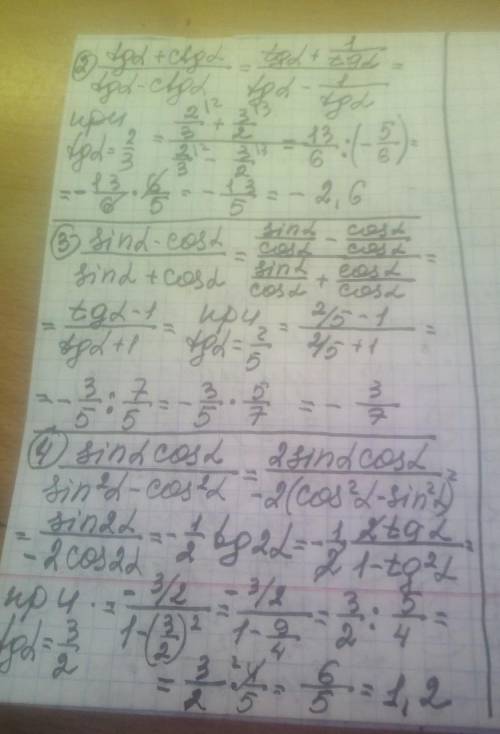 ② (tgα + ctgα)/(tgα - ctgα) = (tgα + 1/tgα)/(tgα - 1/tgα) =
при tgα = 2/3 = (2/3^{12} + 3/2^{13})/(2/3^{12} - 3/2^{13}) = 13/6 : (-5/6) =
= -13/6 · 6/5 = -13/5 = -2,6
③ (sinα - cosα)/(sinα + cosα) = (sinα/cosα - cosα/cosα)/(sinα/cosα + cosα/cosα) =
= (tgα - 1)/(tgα + 1) = при tgα = 2/5 = (2/5 - 1)/(2/5 + 1) =
= -3/5 : 7/5 = -3/5 · 5/7 = -3/7
④ sinα cosα/(sin²α - cos²α) = 2sinα cosα/(-2(cos²α - sin²α)) =
= sin2α/(-2cos2α) = -1/2 tg2α = -1/2 2tgα/(1 - tg²α) =
при tgα = 3/2 = (-3/2)/(1 - (3/2)²) = (-3/2)/(1 - 9/4) = 3/2 : 5/4 =
= 3/2 · 4²/5 = 6/5 = 1,2